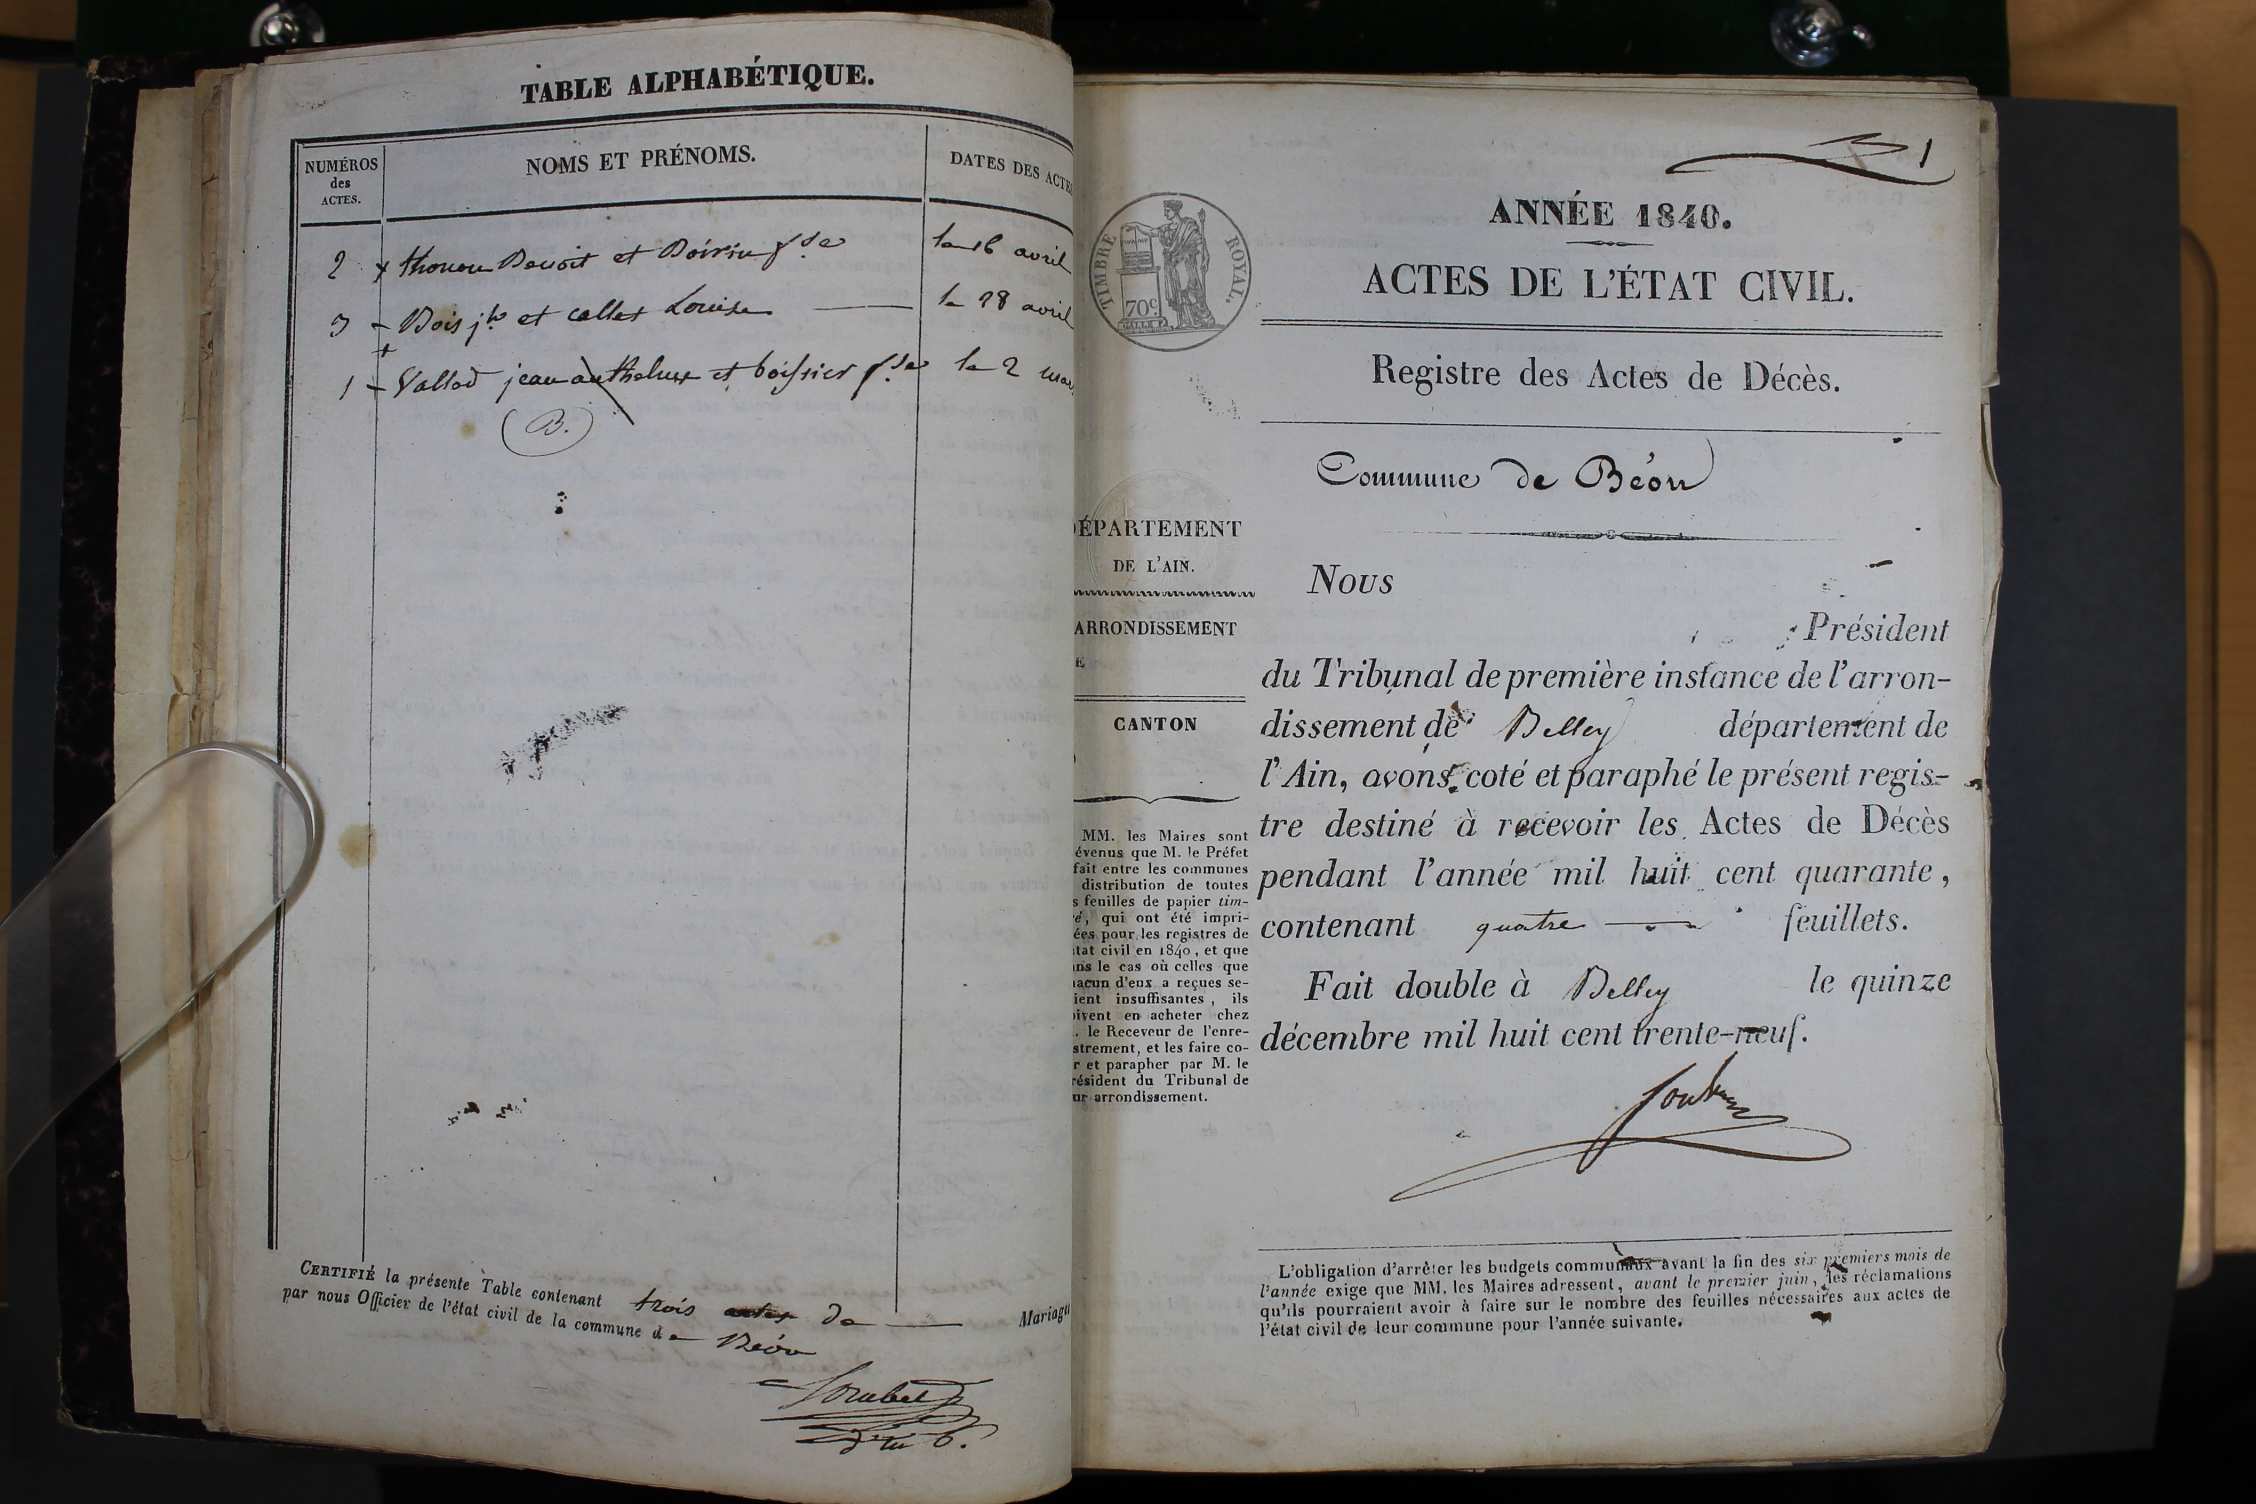 TABLE ALPHABÉTIQUE.
NUMÉROS
des
ACTES.
NOMS ET PRÉNOMS.
DATES DES ACTES
2 thonon Benoit et Boirin fse
le 16 avril
3 Bois jh et callet Louise
le 28 avril
1 Vallod jean anthelme et boissier fse
le 2 mar
(B.)
CERTIFIÉ la présente Table contenant trois actes de Mariage
par nous Officier de l'état civil de la commune de Béon
1
ANNÉE 1840.
TIMBRE ROYAL.
70c
ACTES DE L'ÉTAT CIVIL.
Registre des Actes de Décès.
Commune de Béon
DÉPARTEMENT
DE L'AIN.
ARRONDISSEMENT
E
CANTON
MM. les Maires sont
évenus que M. le Préfet
fait entre les communes
distribution de toutes
s feuilles de papier tim-
é, qui ont été impri-
ées pour les registres de
tat civil en 1840, et que
ns le cas où celles que
hacun d'eux a reçues se-
ient insuffisantes, ils
oivent en acheter chez
. le Receveur de l'enre-
strement, et les faire co-
r et parapher par M. le
résident du Tribunal de
ur arrondissement.
Nous
Président
du Tribunal de première instance de l'arron-
dissement de Belley département de
l'Ain, avons coté et paraphé le présent regis-
tre destiné à recevoir les Actes de Décès
pendant l'année mil huit cent quarante,
contenant quatre feuillets.
Fait double à Belley le quinze
décembre mil huit cent trente-neuf.
L'obligation d'arrêter les budgets communaux avant la fin des six premiers mois de
l'année exige que MM. les Maires adressent, avant le premier juin, les réclamations
qu'ils pourraient avoir à faire sur le nombre des feuilles nécessaires aux actes de
l'état civil de leur commune pour l'année suivante.